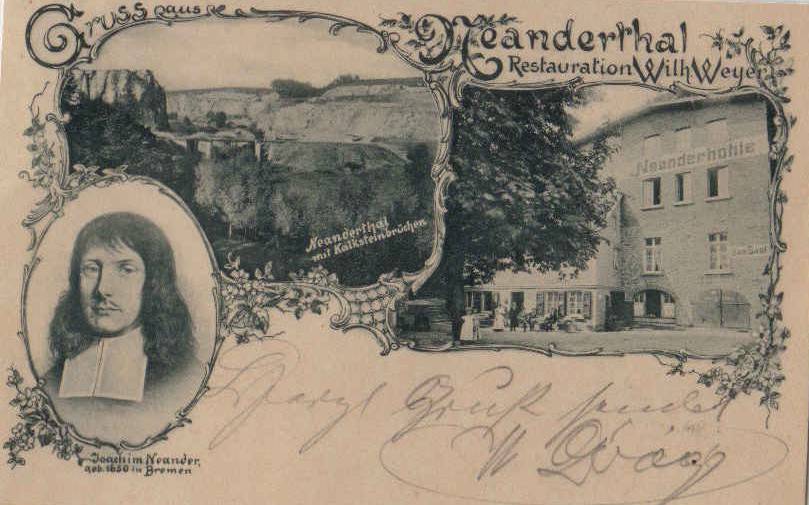 Gruss aus
Neanderthal
Restauration Wilh. Weyer.
Neanderthal
mit Kalksteinbrüchen
Neanderhöhle
Joachim Neander,
geb. 1650 in Bremen
Herzl. Gruß sendet
W